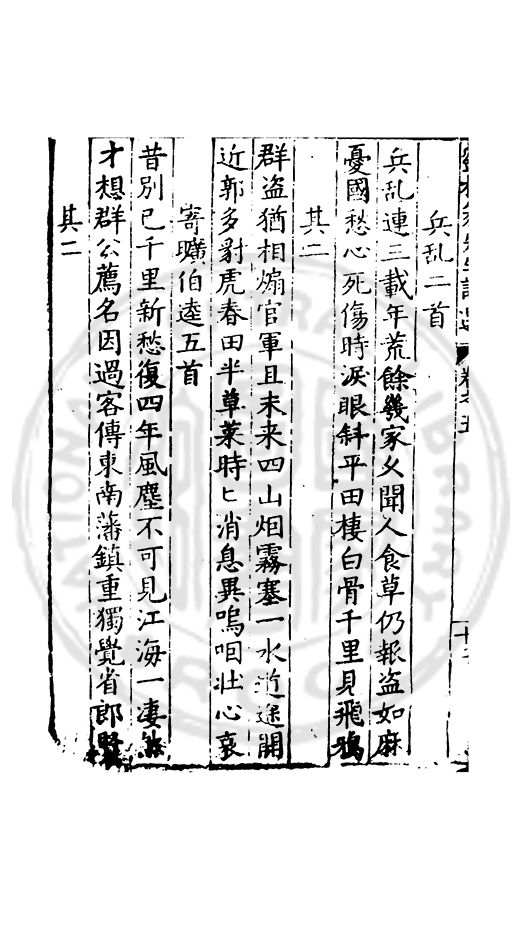 兵乱二首
兵乱連三載年荒餘幾家久聞人食草仍報盗如麻
憂國愁心死傷時淚眼斜平田棲白骨千里見飛鴉
其二
群盗猶相煽官軍且未来四山烟霧塞一水近途開
近郭多豺虎春田半草莱時匕消息異嗚咽壮心哀
寄曠伯逵五首
昔別已千里新愁復四年風塵不可見江海一凄然
才想群公薦名因過客傳東南藩鎮重獨覺省郎賢
其二